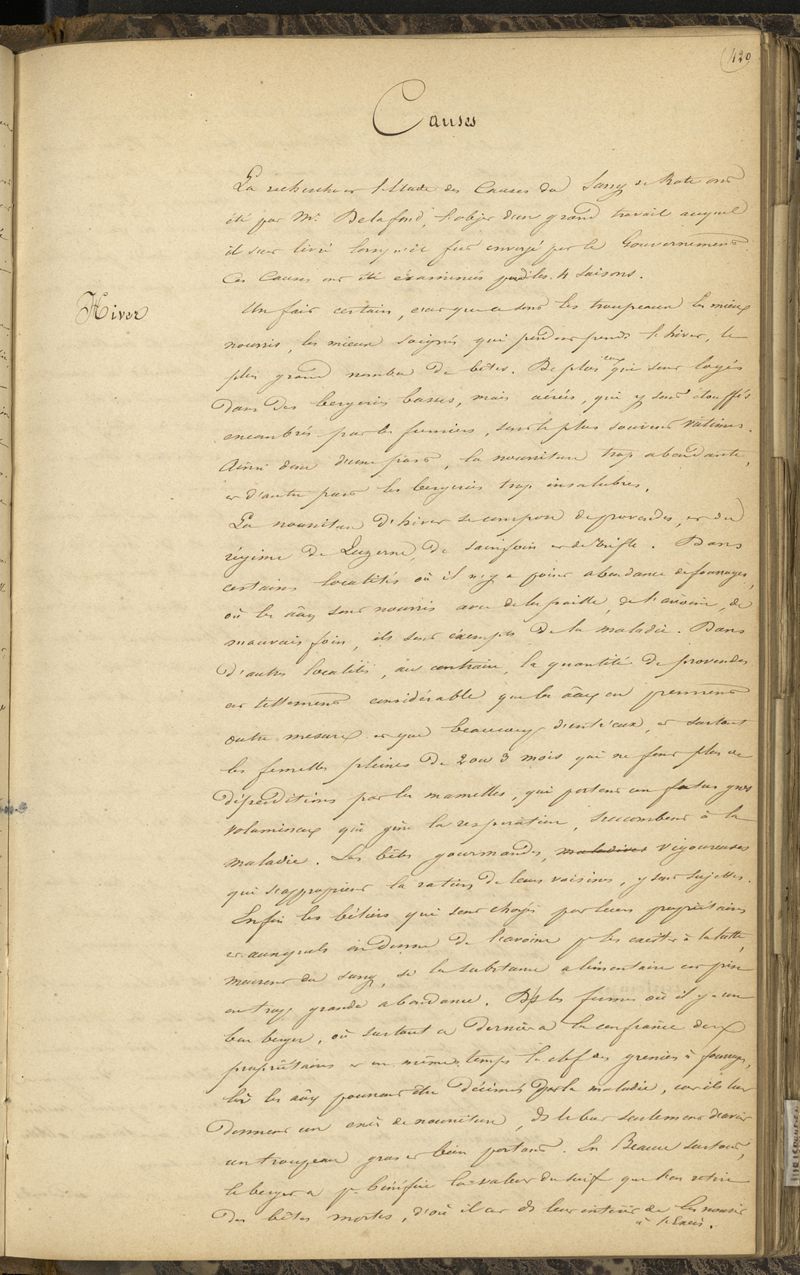 420
Causes
La recherche et l'étude des Causes du Sang de Rate ont
été par Mr. Delafond, l'objet d'un grand travail auquel
il s'est livré lorsqu'il fut envoyé par le Gouvernement.
Ces Causes ont été examinées pdt les 4 saisons.
Hiver
Un fait certain, c'est que ce sont les troupeaux les mieux
nourris, les mieux soignés qui perdent pendt l'hiver, le
plus grand nombre de bêtes. De plus ceux qui sont logés
dans des bergeries basses, mal aérées, qui y sont étouffés
encombrés par les fumiers, sont le plus souvent victimes.
Ainsi donc d'une part, la nourriture trop abondante,
et d'autre part les bergeries trop insalubres.
La nourriture d'hiver se compose de provendes, et du
régime de Luzerne, de sainfoin et de trèfle. Dans
certaines localités où il n'y a point abondance de fourrages,
où les aax sont nourris avec de la paille, de l'avoine, de
mauvais foin, ils sont exempts de la maladie. Dans
d'autres localités, au contraire, la quantité de provendes
est tellement considérable que les aax en prennent
outre mesure et que beaucoup d'entr'eux, et surtout
les femelles pleines de 2 ou 3 mois qui ne font plus de
déperditions par les mamelles, qui portent un fœtus gros
volumineux qui gêne la respiration, succombent à la
maladie. Les bêtes gourmandes, maladives vigoureuses
qui s'approprient la ration de leurs voisines, y sont sujettes.
Enfin les béliers qui sont choisis par leurs propriétaires
et auxquels on donne de l'avoine pr les exciter à la lutte,
meurent du sang, si la substance alimentaire est prise
en trop grande abondance. Ds les fermes où il y a un
bon berger, où surtout ce dernier a la confiance des
propriétaires et en même temps la clef des greniers à fourrages,
là les aax peuvent être décimés par la maladie, car ils leur
donnent un excès de nourriture, ds le but seulement d'avoir
un troupeau gras et bien portant. En Beauce surtout,
le berger a pr bénéfice la valeur du suif que l'on retire
des bêtes mortes, d'où il est ds leur intérêt de les nourrir
à l'excès.